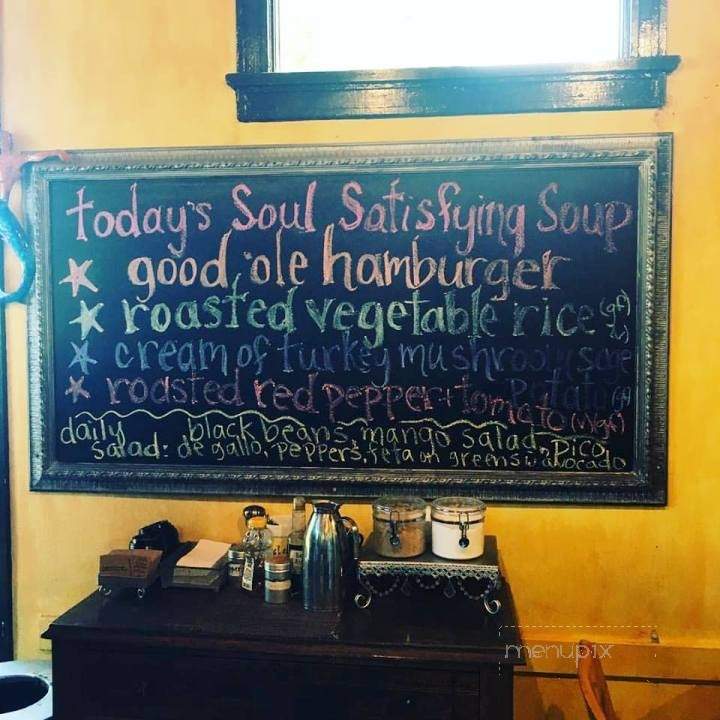 today's Soul Satisfying Soup
good 'ole hamburger
roasted vegetable rice (gf)
cream of turkey mushroom sage
potato
roasted red pepper + tomato (v/gf)
daily salad: black beans, mango salad, pico
de gallo, peppers, feta on greens w avocado
menupix